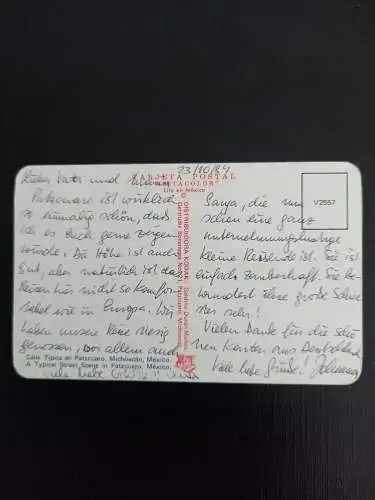 23/10/84
TARJETA POSTAL
"METACOLOR"
Lito en México
V2557
© DISTRIBUIDORA KODAK
Lieber Vati und
Patzcuaro ist wirklich
so einmalig schön, dass
ich es Euch gerne zeigen
würde. Die Höhe ist auch
gut, aber natürlich ist das
Reisen hier nicht so komfor-
tabel wie in Europa. Wir
haben unsere Reise riesig
genossen, vor allem auch
Sanya, die nun
schon eine ganz
unternehmungslustige
kleine Reisende ist. Sie ist
einfach zauberhaft. Sie be-
wundert ihre große Schwes-
ter sehr!
Vielen Dank für die schö-
nen Karten aus Deutschland.
Viele liebe Grüße! Johanna
Calle Típica en Patzcuaro, Michoacán, México.
A Typical Street Scene in Patzcuaro, México.
viele liebe